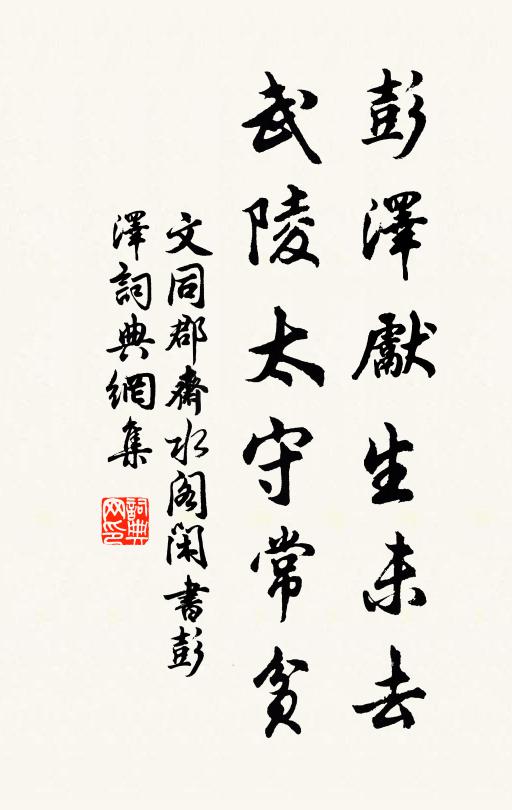 彭澤獻生未去
武陵太守常貧
文同郡齋水阁閑書彭
澤詞典網集
詞典
网印